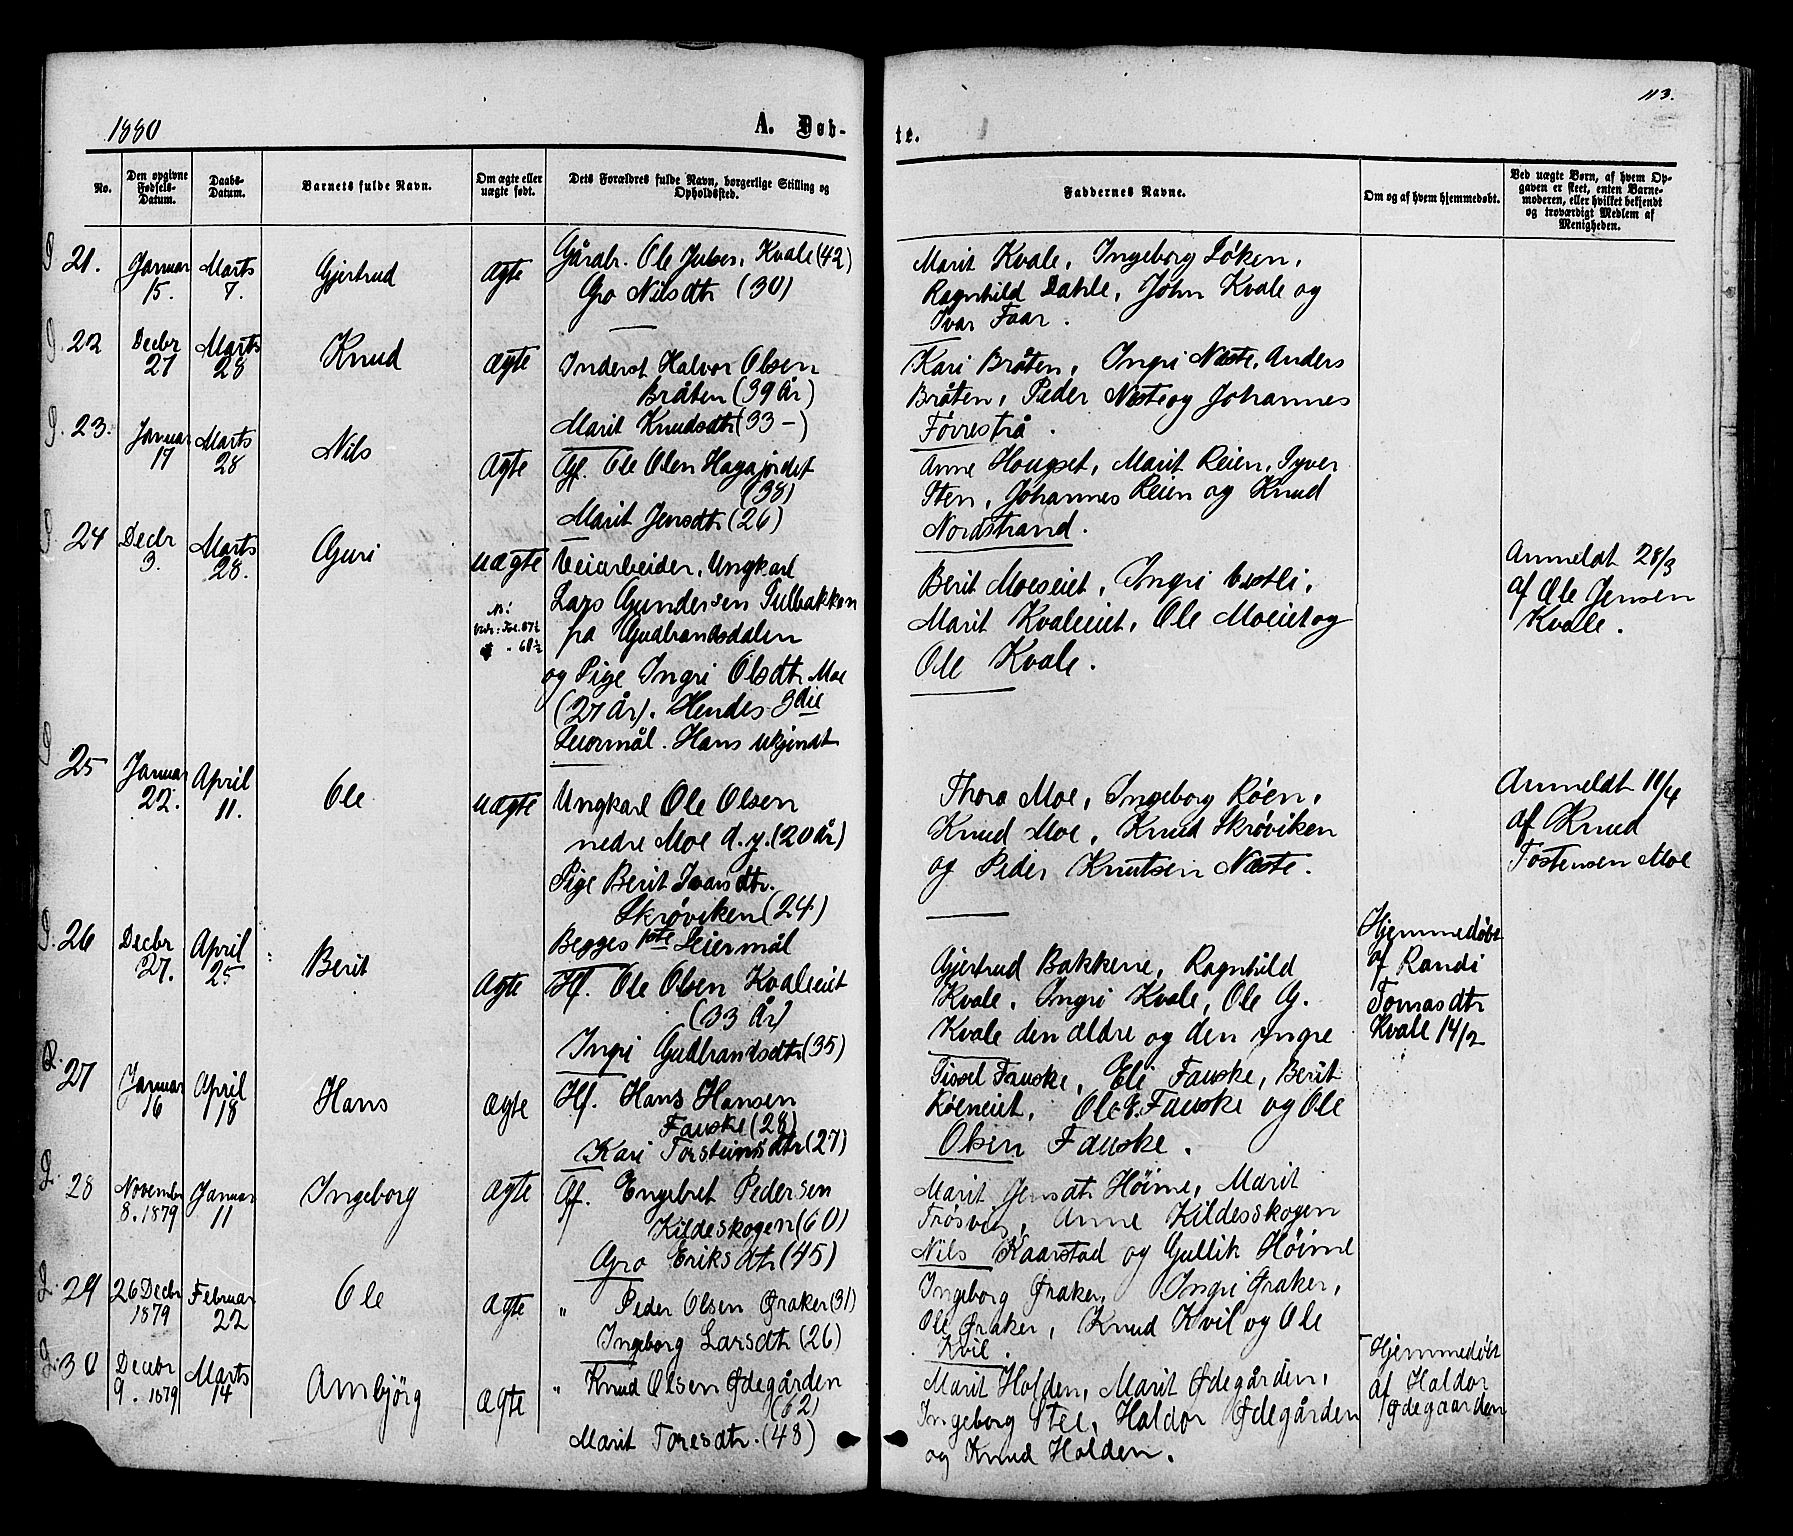 113.
1880
A. Døb-
te.
No.
Den opgivne Fødsels-Datum.
Daabs-Datum.
Barnets fulde Navn.
Om ægte eller uægte født.
Dets Forældres fulde Navn, borgerlige Stilling og Opholdssted.
Faddernes Navne.
Om og af hvem hjemmedøbt.
Ved uægte Børn, af hvem Opgaven er skeet, enten Barnemoderen, eller hvilket bekjendt og troværdigt Medlem af Menigheden.
21. Januar 15. Marts 7. Gjertrud ægte
Gårdbr. Ole Julsen Kvale (42)
Gro Nilsdtr (30)
Marit Kvale, Ingeborg Løken,
Ragnhild Dahle, John Kvale og
Ivar Faar.
22 Decbr 27 Marts 28 Knud ægte
Inderst Halvor Olsen
Bråten (39 år)
Marit Knudsdtr (33 -)
Kari Bråten, Ingri Næste, Anders
Bråten, Peder Næste og Johannes
Førrestrå.
23. Januar 17 Marts 28 Nils ægte
Gf. Ole Olsen Hagajordet
(38)
Marit Jensdtr (26)
Anne Hougset, Marit Reien, Syver
Sten, Johannes Reien og Knud
Nordstrand.
24 Decbr 3. Marts 28. Guri uægte
Veiarbeider, Ungkarl
Lars Gundersen Tulbakken
fra Gudbrandsdalen
og Pige Ingri Olsdtr Moe
(27 År). Hendes 3die
Leiermål. Hans ukjendt
Berit Moeseiet, Ingri Vestli,
Marit Kvaleeiet, Ole Moeiet og
Ole Kvale.
Anmeldt 28/3
af Ole Jensen
Kvale.
25 Januar 22. April 11. Ole uægte
Ungkarl Ole Olsen
nedre Moe d.y. (20 år)
Pige Berit Ivarsdtr.
Skrøviken (24)
Begges 1ste Leiermål
Thora Moe, Ingeborg Røen,
Knud Moe, Knud Skrøviken
og Peder Knutsen Næste.
Anmeldt 11/4
af Knud
Tostensen Moe
26 Decbr 27. April 25 Berit ægte
Hf. Ole Olsen Kvaleeiet
(33 År)
Ingri Gudbrandsdtr (35)
Gjertrud Bakkene, Ragnhild
Kvale, Ingri Kvale, Ole G.
Kvale den ældre og den yngre
Hjemmedøbt
af Randi
Tomasdtr
Kvale 14/2
27 Januar 16 April 18 Hans ægte
Hf. Hans Hansen
Fauske (28)
Kari Torsteinsdtr (27)
Sissel Fauske, Eli Fauske, Berit
Røeneiet, Ole Fauske og Ole
Olsen Fauske.
28 Novembr 8. 1879 Januar 11 Ingeborg ægte
Gf. Engebret Pedersen
Kildeskogen (60)
Gro Eriksdtr (45)
Marit Jensdtr Høime, Marit
Trøsvig, Anne Kildesskogen
Nils Kaarstad og Gullik Høime
29 26 Decbr 1879 Februar 22 Ole ægte
" Peder Olsen Øraker (31)
Ingeborg Larsdtr (26)
Ingeborg Øraker, Ingri Øraker,
Ole Øraker, Knud Kvil og Ole
Kvil.
30 Decbr 9. 1879 Marts 14 Ambjörg ægte
" Knud Olsen Ødegården
(62)
Marit Toresdtr. (48)
Marit Holden, Marit Ødegården,
Ingeborg Stee, Haldor Ødegården
og Knud Holden.
Hjemmedøbt
af Haldor
Ødegaarden